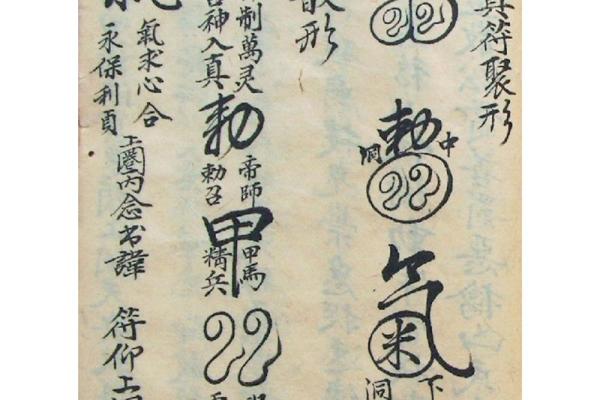 真符聚形
勅
中
洞
氣
下
洞
散形
制萬灵
神入真
勅
帝師
勅召
甲
甲馬
精兵
氣求心合
永保利貞
上圈內念书諱
符仰上